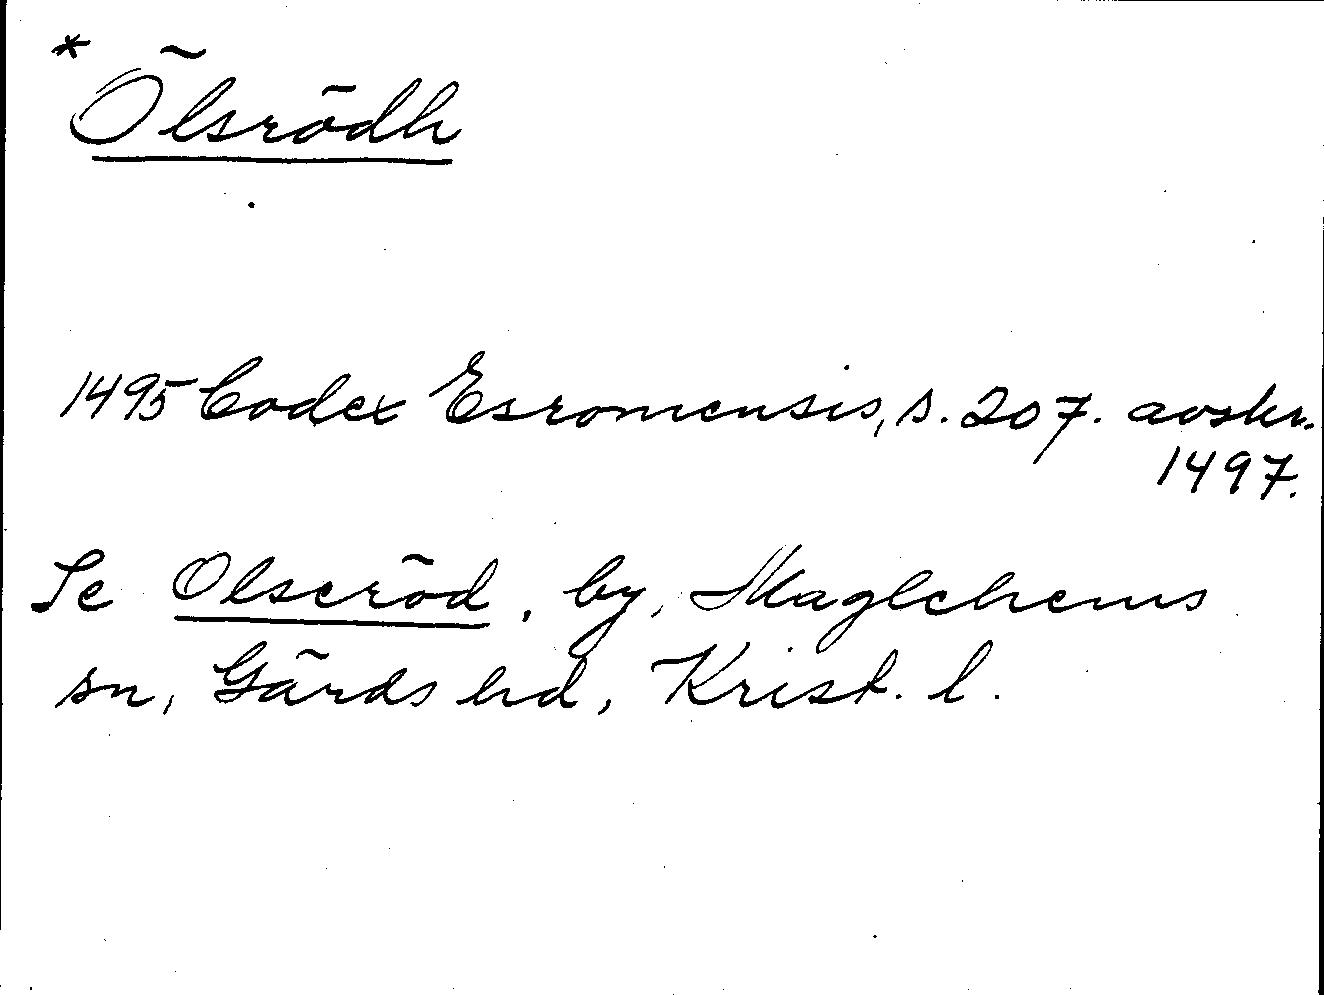 * Ölsrödh
1495 Codex Esromensis, s. 207. avskr.
1497.
Se Olseröd, by, Maglehems
sn, Gärds hd, Krist. l.